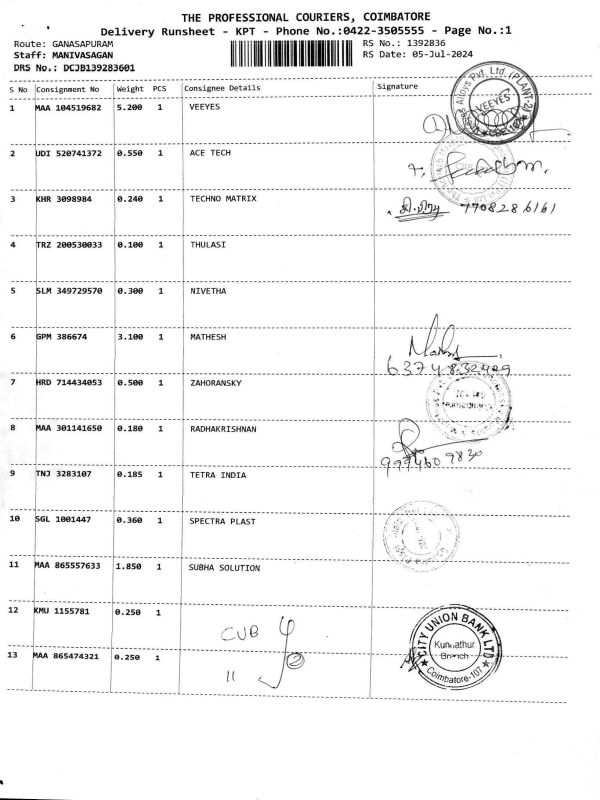 THE PROFESSIONAL COURIERS, COIMBATORE
Delivery Runsheet - KPT - Phone No.:0422-3505555 - Page No.:1
Route: GANASAPURAM RS No.: 1392836
Staff: MANIVASAGAN RS Date: 05-Jul-2024
DRS No.: DCJB139283601
S No Consignment No Weight PCS Consignee Details Signature
1 MAA 104519682 5.200 1 VEEYES
Alloys Pvt. Ltd. (PLANT-2)
VEEYES
2 UDI 520741372 0.550 1 ACE TECH
3 KHR 3098984 0.240 1 TECHNO MATRIX
7708286161
4 TRZ 200530033 0.100 1 THULASI
5 SLM 349729570 0.300 1 NIVETHA
6 GPM 386674 3.100 1 MATHESH
6374832409
7 HRD 714434053 0.500 1 ZAHORANSKY
8 MAA 301141650 0.180 1 RADHAKRISHNAN
9994609830
9 TNJ 3283107 0.185 1 TETRA INDIA
10 SGL 1001447 0.360 1 SPECTRA PLAST
11 MAA 865557633 1.850 1 SUBHA SOLUTION
12 KMU 1155781 0.250 1
CUB
CITY UNION BANK LTD
Kunnathur
Branch
Coimbatore-107
13 MAA 865474321 0.250 1
11 2